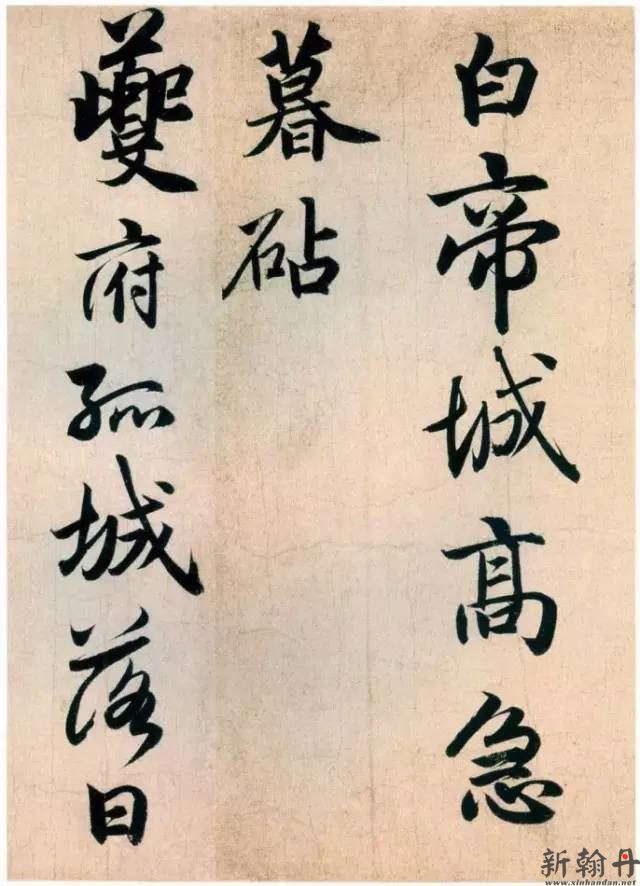 白帝城高急
暮砧
夔府孤城落日
新翰丹
www.xinhandan.net